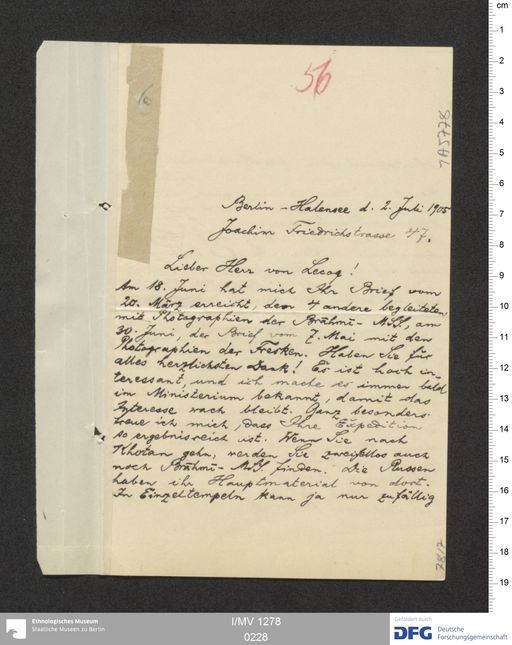 56
Berlin-Halensee d. 2. Juli 1905
Joachim Friedrichstrasse 47.
Lieber Herr von Lecoq!
Am 18. Juni hat mich Ihr Brief vom
20. März erreicht, den 4 andere begleiteten,
mit Photographien der Brāhmī-MSS, am
30. Juni, der Brief vom 7. Mai mit den
Photographien der Fresken. Haben Sie für
alles herzlichsten Dank! Es ist hoch in-
teressant, und ich mache es immer bald
im Ministerium bekannt, damit das
Interesse wach bleibt. Ganz besonders
freue ich mich, dass Ihre Expedition
so ergebnisreich ist. Wenn Sie nach
Khotan gehn, werden Sie zweifellos auch
noch Brāhmī-MSS. finden. Die Russen
haben ihr Hauptmaterial von dort.
In Einzeltempeln kann ja nur zufällig
cm
1
2
3
4
5
6
7
8
9
10
11
12
13
14
15
16
17
18
19
Ethnologisches Museum
Staatliche Museen zu Berlin
I/MV 1278
0228
Gefördert durch
DFG Deutsche
Forschungsgemeinschaft